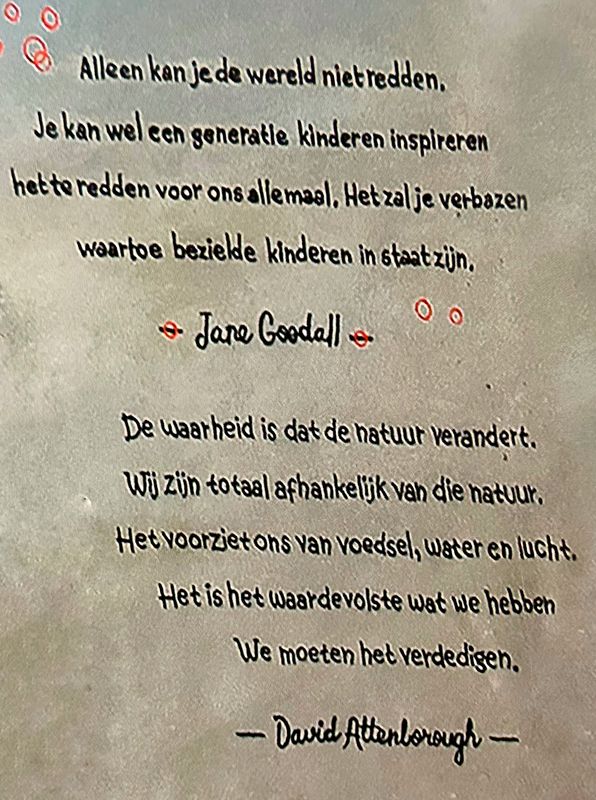 Alleen kan je de wereld niet redden.
Je kan wel een generatie kinderen inspireren
het te redden voor ons allemaal. Het zal je verbazen
waartoe bezielde kinderen in staat zijn.
Jane Goodall
De waarheid is dat de natuur verandert.
Wij zijn totaal afhankelijk van die natuur.
Het voorziet ons van voedsel, water en lucht.
Het is het waardevolste wat we hebben
We moeten het verdedigen.
— David Attenborough —